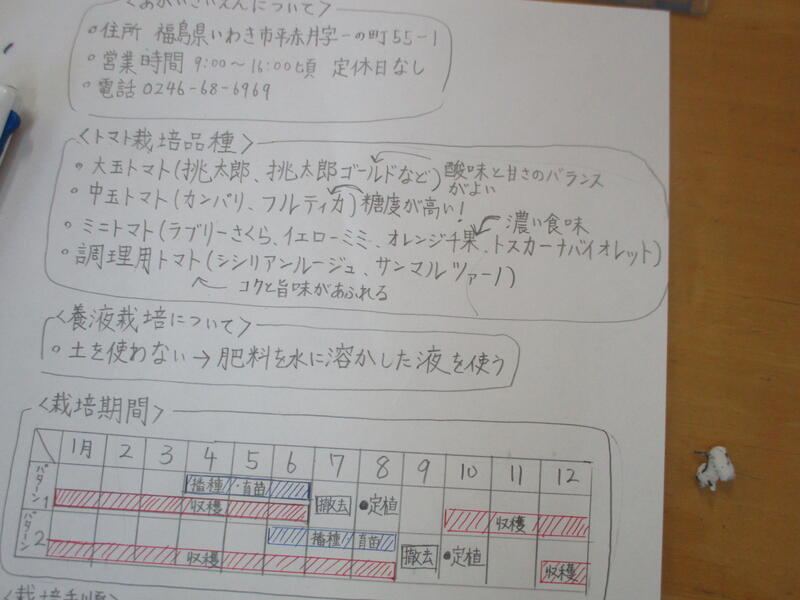 〈あかいさいえんについて〉
○住所 福島県いわき市平赤井字一の町55-1
○営業時間 9:00〜16:00頃 定休日なし
○電話 0246-68-6969
〈トマト栽培品種〉
・大玉トマト(桃太郎、桃太郎ゴールドなど) 酸味と甘さのバランスがよい
・中玉トマト(カンパリ、フルティカ) 糖度が高い!
濃い食味
・ミニトマト(ラブリーさくら、イエローミミ、オレンジ千果、トスカーナバイオレット)
・調理用トマト(シシリアンルージュ、サンマルツァーノ)
コクと旨味があふれる
〈養液栽培について〉
○土を使わない→肥料を水に溶かした液を使う
〈栽培期間〉
1月 2 3 4 5 6 7 8 9 10 11 12
パターン1 播種・育苗 収穫 撤去 ●定植 収穫
パターン2 播種 育苗 収穫 撤去 ●定植 収穫
〈栽培手順〉